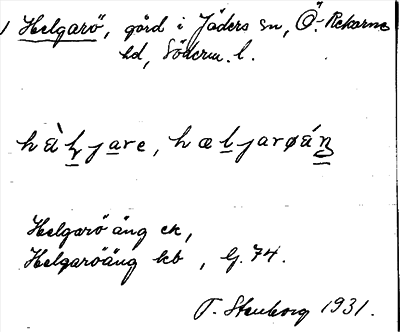 Helgarö, gård i Jäders sn, Ö. Rekarne
hd, Söderm. l.
hæ̀l̠ja̠re, hæl̠jarøáŋ̠
Helgarö äng ek,
Helgaröäng kb, G. 74.
T. Stenborg 1931.